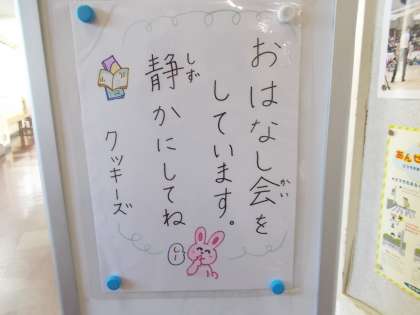 おはなし会を
かい
しています。
静かにしてね
しず
クッキーズ
しー